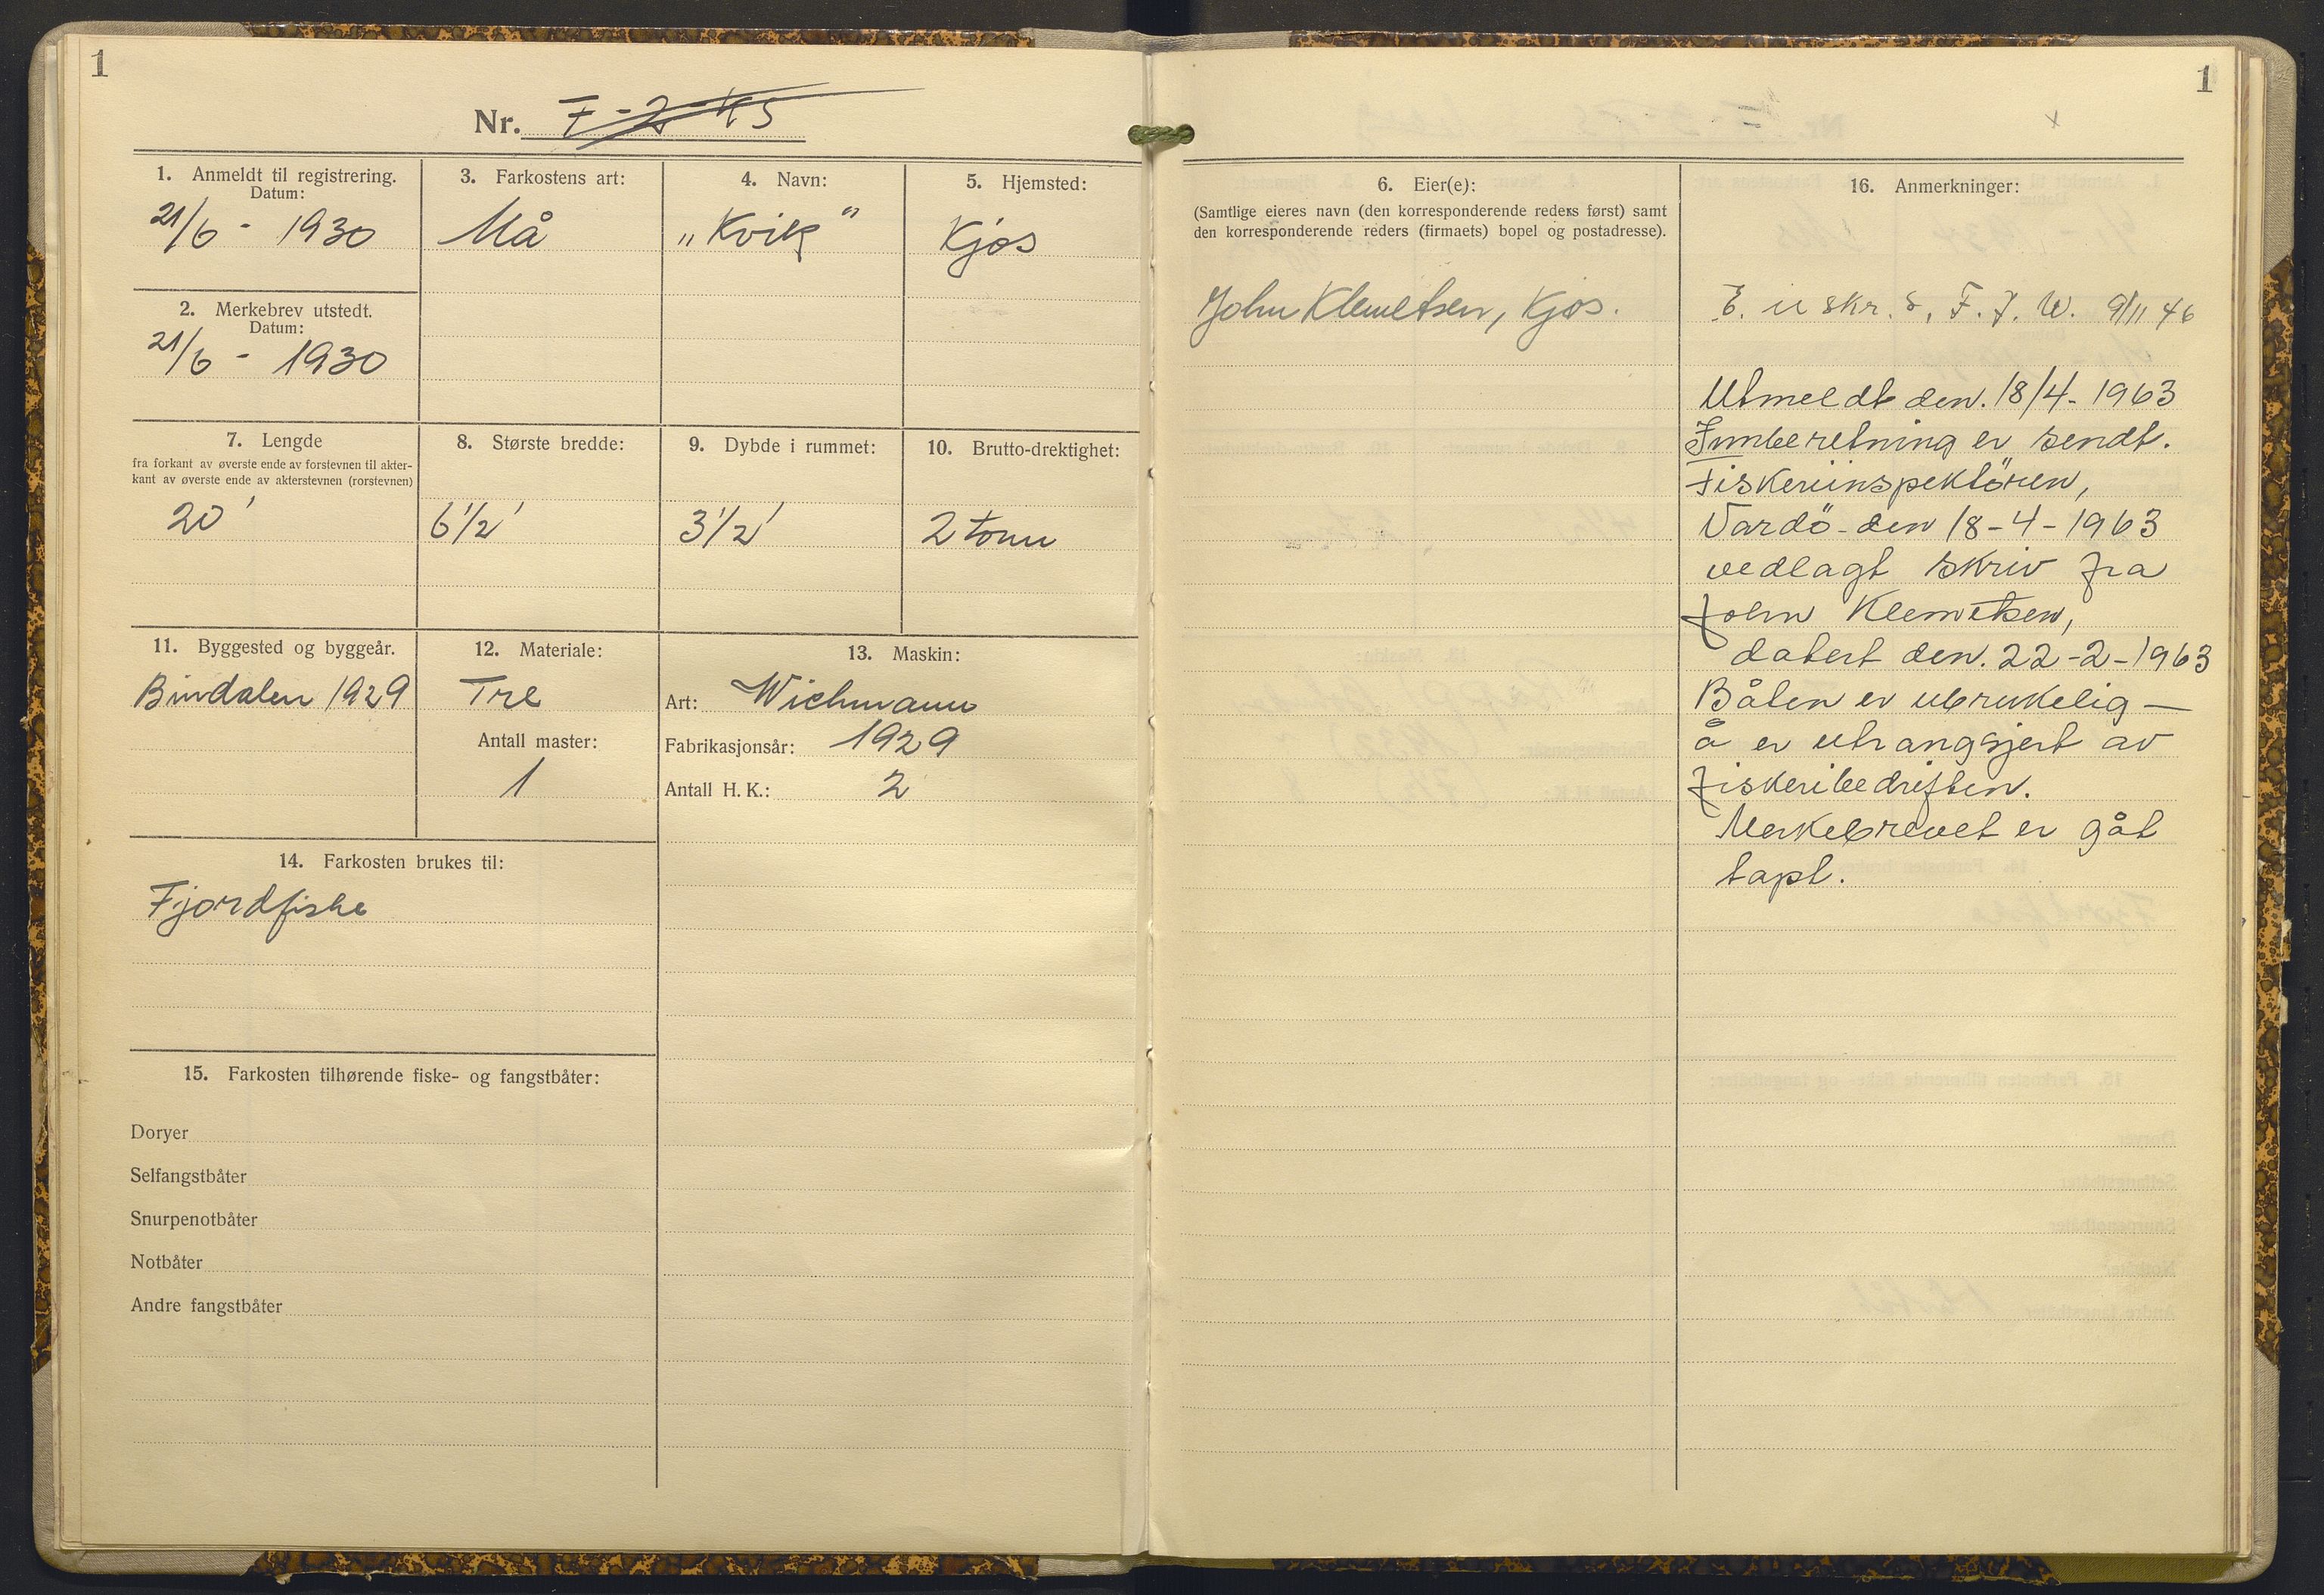 1
Nr. F-2-KS
1. Anmeldt til registrering.
Datum:
21/6 - 1930
2. Merkebrev utstedt.
Datum:
21/6 - 1930
3. Farkostens art:
Må
4. Navn:
„Kvik“
5. Hjemsted:
Kjøs
7. Lengde
fra forkant av øverste ende av forstevnen til akter-
kant av øverste ende av akterstevnen (rorstevnen)
20'
8. Største bredde:
6 1/2'
9. Dybde i rummet:
3 1/2'
10. Brutto-drektighet:
2 tonn
11. Byggested og byggeår.
Bindalen 1929
12. Materiale:
Tre
Antall master:
1
13. Maskin:
Art: Wichmann
Fabrikasjonsår: 1929
Antall H. K.: 2
14. Farkosten brukes til:
Fjordfiske
15. Farkosten tilhørende fiske- og fangstbåter:
Doryer
Selfangstbåter
Snurpenotbåter
Notbåter
Andre fangstbåter
1
x
6. Eier(e):
(Samtlige eieres navn (den korresponderende reders først) samt
den korresponderende reders (firmaets) bopel og postadresse).
John Klemetsen, Kjøs.
16. Anmerkninger:
skr. F. J. W. 9/11 46
Utmeldt den. 18/4 - 1963
Innberetning er sendt.
Fiskeriinspektören,
Vardö - den 18-4-1963
vedlagt skriv fra
John Klemetsen,
datert den. 22-2-1963
Båten er ubrukelig —
å er utrangsjert av
fiskeribedriften.
Merkebrevet er gåt
tapt.